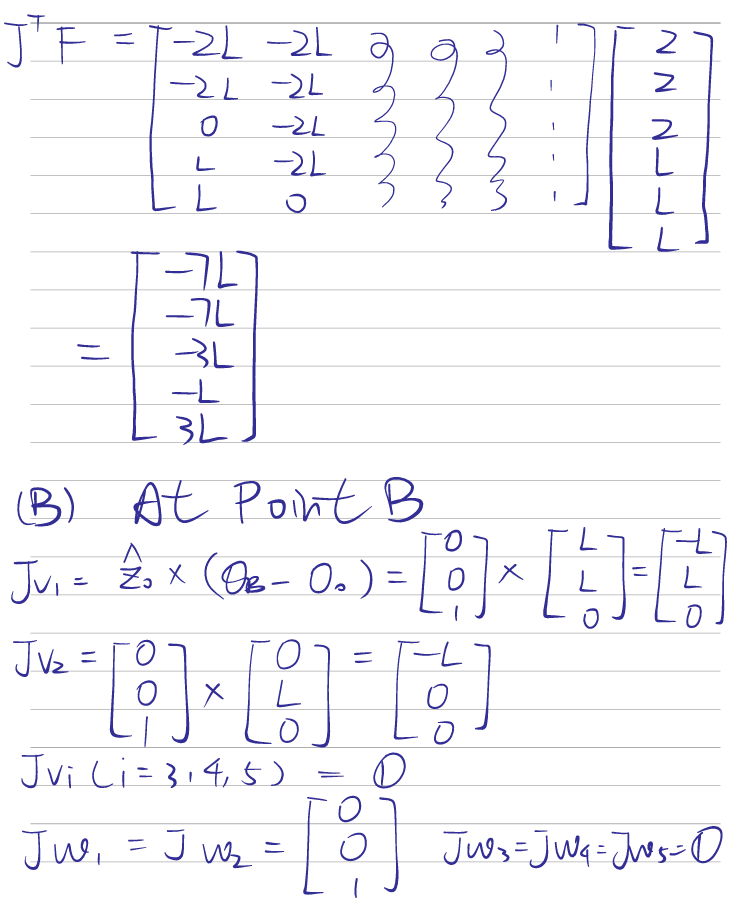 JᵀF = [ -2L -2L 0 0 0 1 ] [ 2 ]
[ -2L -2L 1 ] [ 2 ]
[ 0 -2L 1 ] [ 2 ]
[ L -2L 1 ] [ L ]
[ L 0 1 ] [ L ]
[ L ]
[ -7L ]
[ -7L ]
= [ -3L ]
[ -L ]
[ 3L ]
(B) At Point B
Jv₁ = ẑ₀ × (O_B - O₀) = [ 0 0 1 ] × [ L L 0 ] = [ -L L 0 ]
Jv₂ = [ 0 0 1 ] × [ 0 L 0 ] = [ -L 0 0 ]
Jvi (i = 3, 4, 5) = 0
Jw₁ = Jw₂ = [ 0 0 1 ] Jw₃ = Jw₄ = Jw₅ = 0